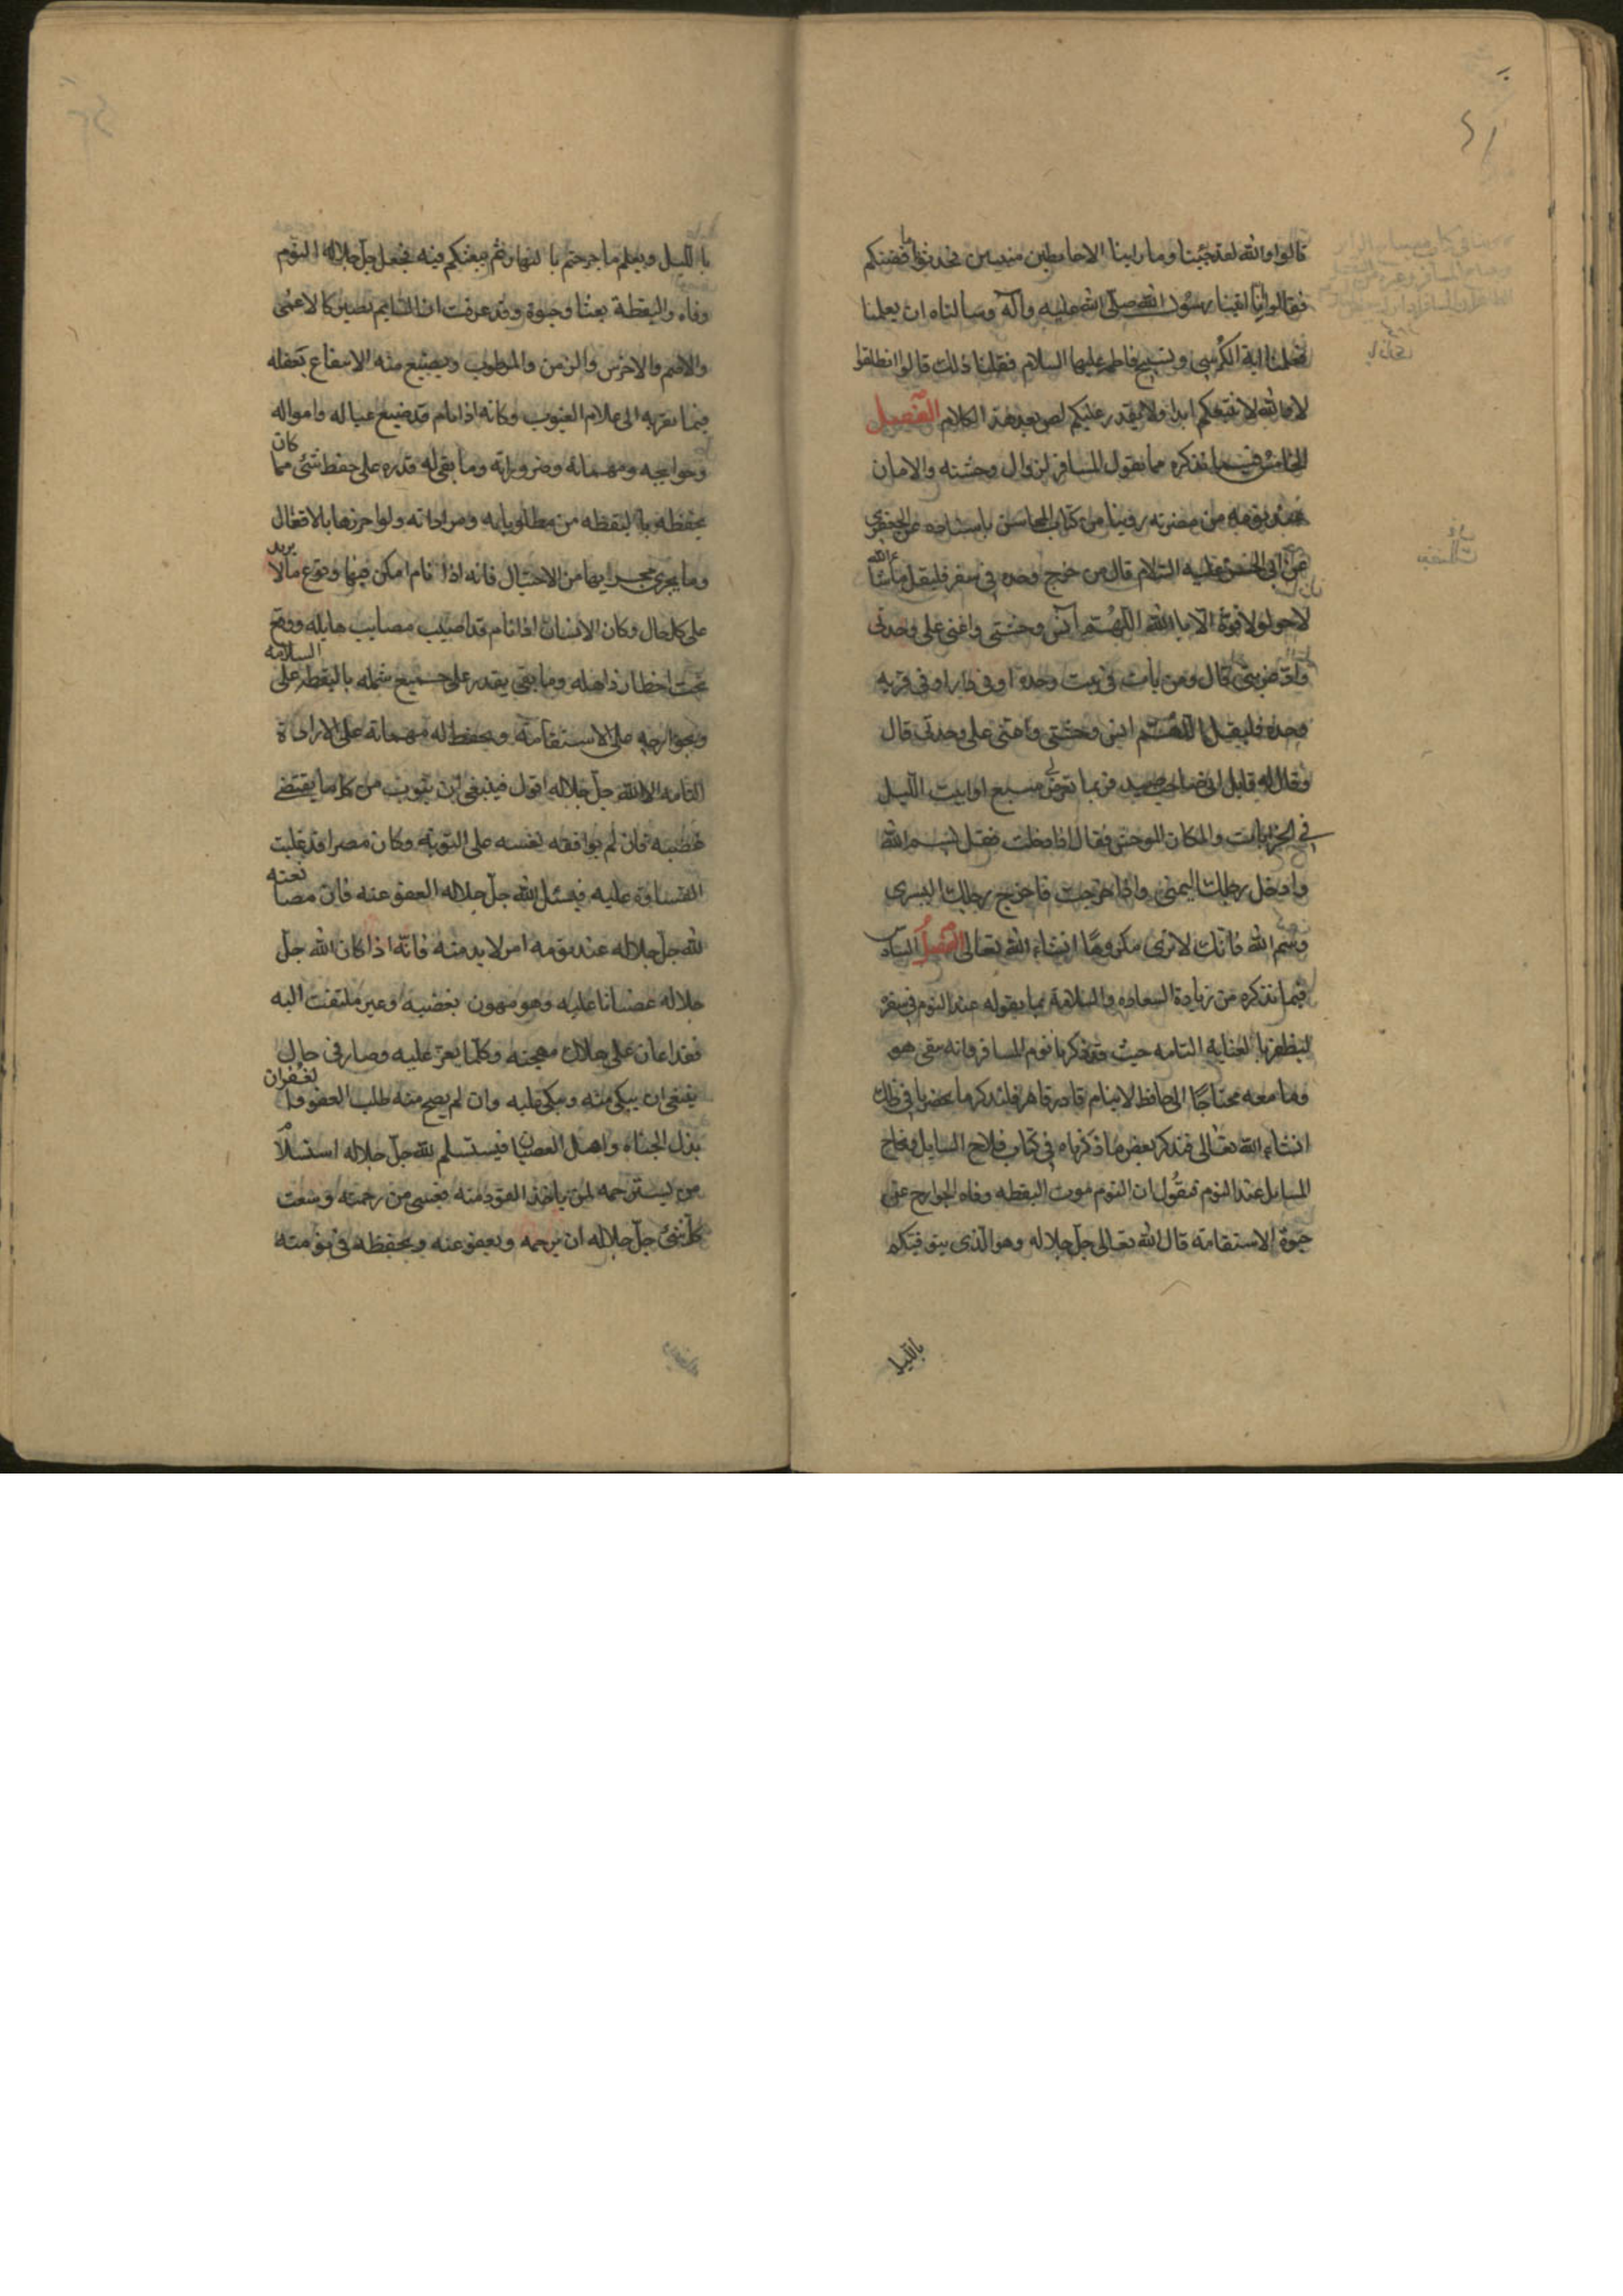 قالوا والله لقد جئنا وما راينا الا حايطين مبنيين فحدثونا ما قصتكم
فقالوا انا اتينا رسول الله صلى الله عليه وآله وسالناه ان يعلمنا
فعلمنا اية الكرسي وتسبيح فاطمه عليها السلام فقلنا ذلك قالوا انطلقوا
لا والله لا نتبعكم ابدا ولا يقدر عليكم لص بعد هذا الكلام الفصل
الخامس فيما نذكره مما يقول المسافر لزوال وحشته والامان
عند نومه من مضرته روينا من كتاب المحاسن باسناده عن الجعفري
عن ابي الحسن عليه السلام قال من خرج وحده في سفر فليقل ما شاء الله
لا حول ولا قوة الا بالله اللهم آنس وحشتي واعني على وحدتي
واد غيبتي قال ومن بات في بيت وحده او في دار او في قرية
وحده فليقل اللهم انس وحشتي واعني على وحدتي قال
وقال له قايل اني صاحب صيد وربما تعرض لي سبع او ابيت الليل
في الخرابات والمكان الموحش فقال اذا دخلت فقل بسم الله
وادخل رجلك اليمنى واذا خرجت فاخرج رجلك اليسرى
وسم الله فانك لا ترى مكروها انشاء الله تعالى الفصل السادس
فيما نذكره من زيادة السعاده والسلامة بما يقوله عند النوم في سفره
ليظفر بالعناية التامه حيث قد ذكرنا نوم المسافر وانه يبقى هو
وما معه محتاجا الى حافظ لا ينام قادر قاهر فلنذكر ما يحضرنا في ذلك
انشاء الله تعالى فنذكر بعض ما ذكرناه في كتاب فلاح السايل ونجاح
المسايل عند النوم فنقول ان النوم موت اليقظه وفاه الجوارح عن
حيوة الاستقامة قال الله تعالى جل جلاله وهو الذي يتوفيكم
بالليل
بالليل ويعلم ما جرحتم بالنهار ثم يبعثكم فيه فجعل جل جلاله النوم
وفاه واليقظة بعثا وحيوة وقد عرفت ان النايم يصير كالاعمى
والاصم والاخرس والزمن والمرطوب ويمتنع منه الانتفاع بعقله
فيما يقربه الى علام الغيوب وكانه اذا نام قد ضيع عياله وامواله
وحوايجه ومهماته وضروراته وما بقي له قدره على حفظ شئ مما كان
يحفظه باليقظه من مطلوباته ومراداته ولو احرزها بالاقفال
وما يجري مجراها من الاحتيال فانه اذا نام امكن فيها وقوع ما لا يريد
على كل حال وكان الانسان اذا نام قد اصيب بمصايب هايله ووقع
تحت اخطار ذاهله وما بقي يقدر على جميع شمله باليقظه على السلامه
وبجوارحه على الاستقامة ويحفظ له مهماته على الارادة
التامه الا الله جل جلاله اقول فينبغي ان يتوب من كل ما يقتضي
غضبه فان لم يوافقه نفسه على التوبة وكان مصرا قد غلبت
القساوة عليه فيسئل الله جل جلاله العفو عنه فان مصانعته
لله جل جلاله عند نومه امر لا بد منه فانه اذا كان الله جل
جلاله غضبانا عليه وهو مهون بغضبه وغير ملتفت اليه
فقد اعان على هلاك مهجته وكلما يعز عليه وصار في حال
ينبغي ان يبكى منه ويبكى عليه وان لم يصح منه طلب العفو والغفران
بذل الجناه واهل العصيان فيستسلم لله جل جلاله استسلام
من يسترحمه لمن ياخذ القود منه فعسى من رحمته وسعت
كل شئ جل جلاله ان يرحمه ويعفو عنه ويحفظه في نومته